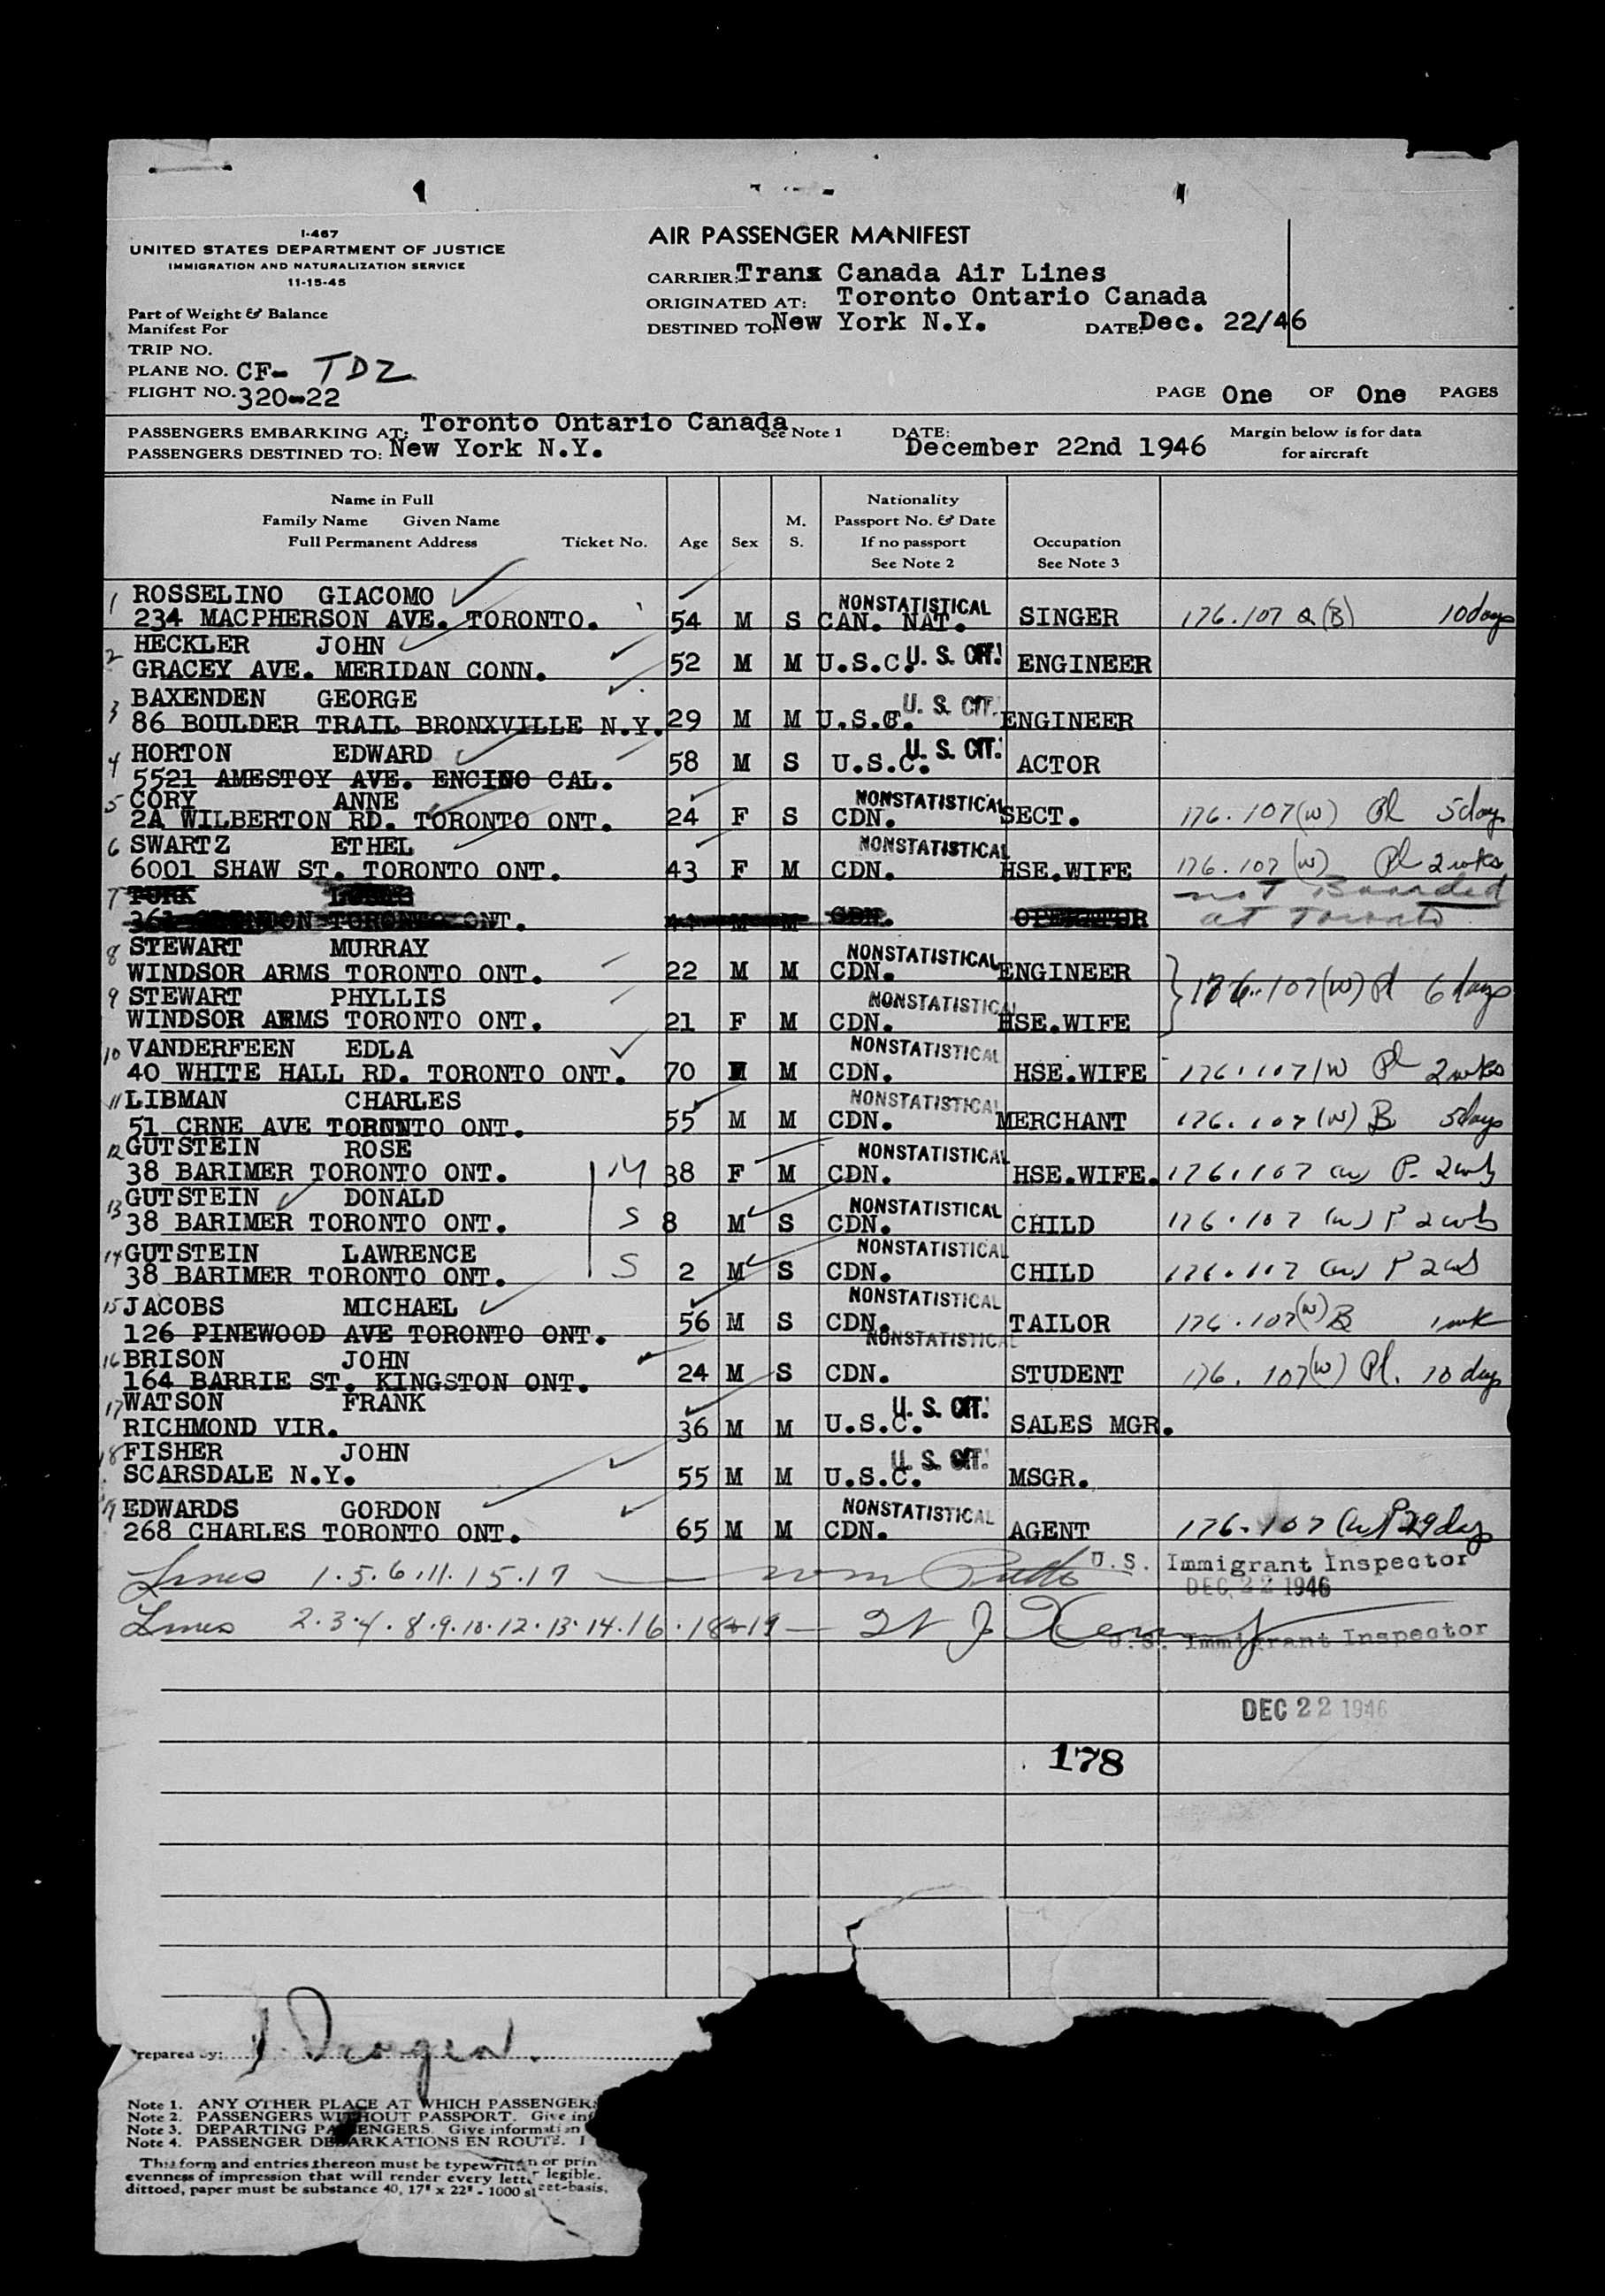 I-467
UNITED STATES DEPARTMENT OF JUSTICE
IMMIGRATION AND NATURALIZATION SERVICE
11-15-45
Part of Weight & Balance
Manifest For
TRIP NO.
PLANE NO. CF- TDZ
FLIGHT NO. 320-22
AIR PASSENGER MANIFEST
CARRIER: Trans Canada Air Lines
ORIGINATED AT: Toronto Ontario Canada
DESTINED TO: New York N.Y. DATE: Dec. 22/46
PAGE One OF One PAGES
PASSENGERS EMBARKING AT: Toronto Ontario Canada See Note 1 DATE: December 22nd 1946
PASSENGERS DESTINED TO: New York N.Y.
Margin below is for data
for aircraft
Name in Full
Family Name Given Name
Full Permanent Address Ticket No. Age Sex M. S.
Nationality
Passport No. & Date
If no passport
See Note 2
Occupation
See Note 3
1 ROSSELINO GIACOMO NONSTATISTICAL
234 MACPHERSON AVE. TORONTO. 54 M S CAN. NAT. SINGER 176.107 Q (B) 10 days
2 HECKLER JOHN
GRACEY AVE. MERIDAN CONN. 52 M M U.S.C. U. S. CIT. ENGINEER
3 BAXENDEN GEORGE U. S. CIT.
86 BOULDER TRAIL BRONXVILLE N.Y. 29 M M U.S.C. ENGINEER
4 HORTON EDWARD U. S. CIT.
5521 AMESTOY AVE. ENCINO CAL. 58 M S U.S.C. ACTOR
5 CORY ANNE NONSTATISTICAL
2A WILBERTON RD. TORONTO ONT. 24 F S CDN. SECT. 176.107 (W) Pl 5 days
6 SWARTZ ETHEL NONSTATISTICAL
6001 SHAW ST. TORONTO ONT. 43 F M CDN. HSE.WIFE 176.107 (W) Pl 2 wks
7 not Boarded
TORONTO ONT. CDN. OPERATOR at Toronto
8 STEWART MURRAY NONSTATISTICAL
WINDSOR ARMS TORONTO ONT. 22 M M CDN. ENGINEER
9 STEWART PHYLLIS NONSTATISTICAL 176.107 (W) Pl 6 days
WINDSOR ARMS TORONTO ONT. 21 F M CDN. HSE.WIFE
10 VANDERFEEN EDLA NONSTATISTICAL
40 WHITE HALL RD. TORONTO ONT. 70 M CDN. HSE.WIFE 176.107 (W Pl 2 wks
11 LIBMAN CHARLES NONSTATISTICAL
51 CRNE AVE TORONTO ONT. 55 M M CDN. MERCHANT 176.107 (W) B 5 days
12 GUTSTEIN ROSE NONSTATISTICAL
38 BARIMER TORONTO ONT. M 38 F M CDN. HSE.WIFE. 176.107 (W) P. 2 wks
13 GUTSTEIN DONALD NONSTATISTICAL
38 BARIMER TORONTO ONT. S 8 M S CDN. CHILD 176.107 (W) P 2 wks
14 GUTSTEIN LAWRENCE NONSTATISTICAL
38 BARIMER TORONTO ONT. S 2 M S CDN. CHILD 176.107 (W) P 2 wks
15 JACOBS MICHAEL NONSTATISTICAL
126 PINEWOOD AVE TORONTO ONT. 56 M S CDN. TAILOR 176.107 (W) B 1 wk
16 BRISON JOHN NONSTATISTICAL
164 BARRIE ST. KINGSTON ONT. 24 M S CDN. STUDENT 176.107 (W) Pl. 10 days
17 WATSON FRANK U. S. CIT.
RICHMOND VIR. 36 M M U.S.C. SALES MGR.
18 FISHER JOHN U. S. CIT.
SCARSDALE N.Y. 55 M M U.S.C. MSGR.
19 EDWARDS GORDON NONSTATISTICAL
268 CHARLES TORONTO ONT. 65 M M CDN. AGENT 176.107 (W) P 29 days
Lines 1.5.6.11.15.17 — Wm U.S. Immigrant Inspector
DEC 22 1946
Lines 2.3.4.8.9.10.12.13.14.16.18+19 — J. U.S. Immigrant Inspector
DEC 22 1946
178
Prepared by:
Note 1. ANY OTHER PLACE AT WHICH PASSENGER
Note 2. PASSENGERS WITHOUT PASSPORT. Give inf
Note 3. DEPARTING PASSENGERS. Give information
Note 4. PASSENGER DEBARKATIONS EN ROUTE. I
This form and entries thereon must be typewritten or prin
evenness of impression that will render every letter legible.
dittoed, paper must be substance 40, 17" x 22" - 1000 sheet-basis.